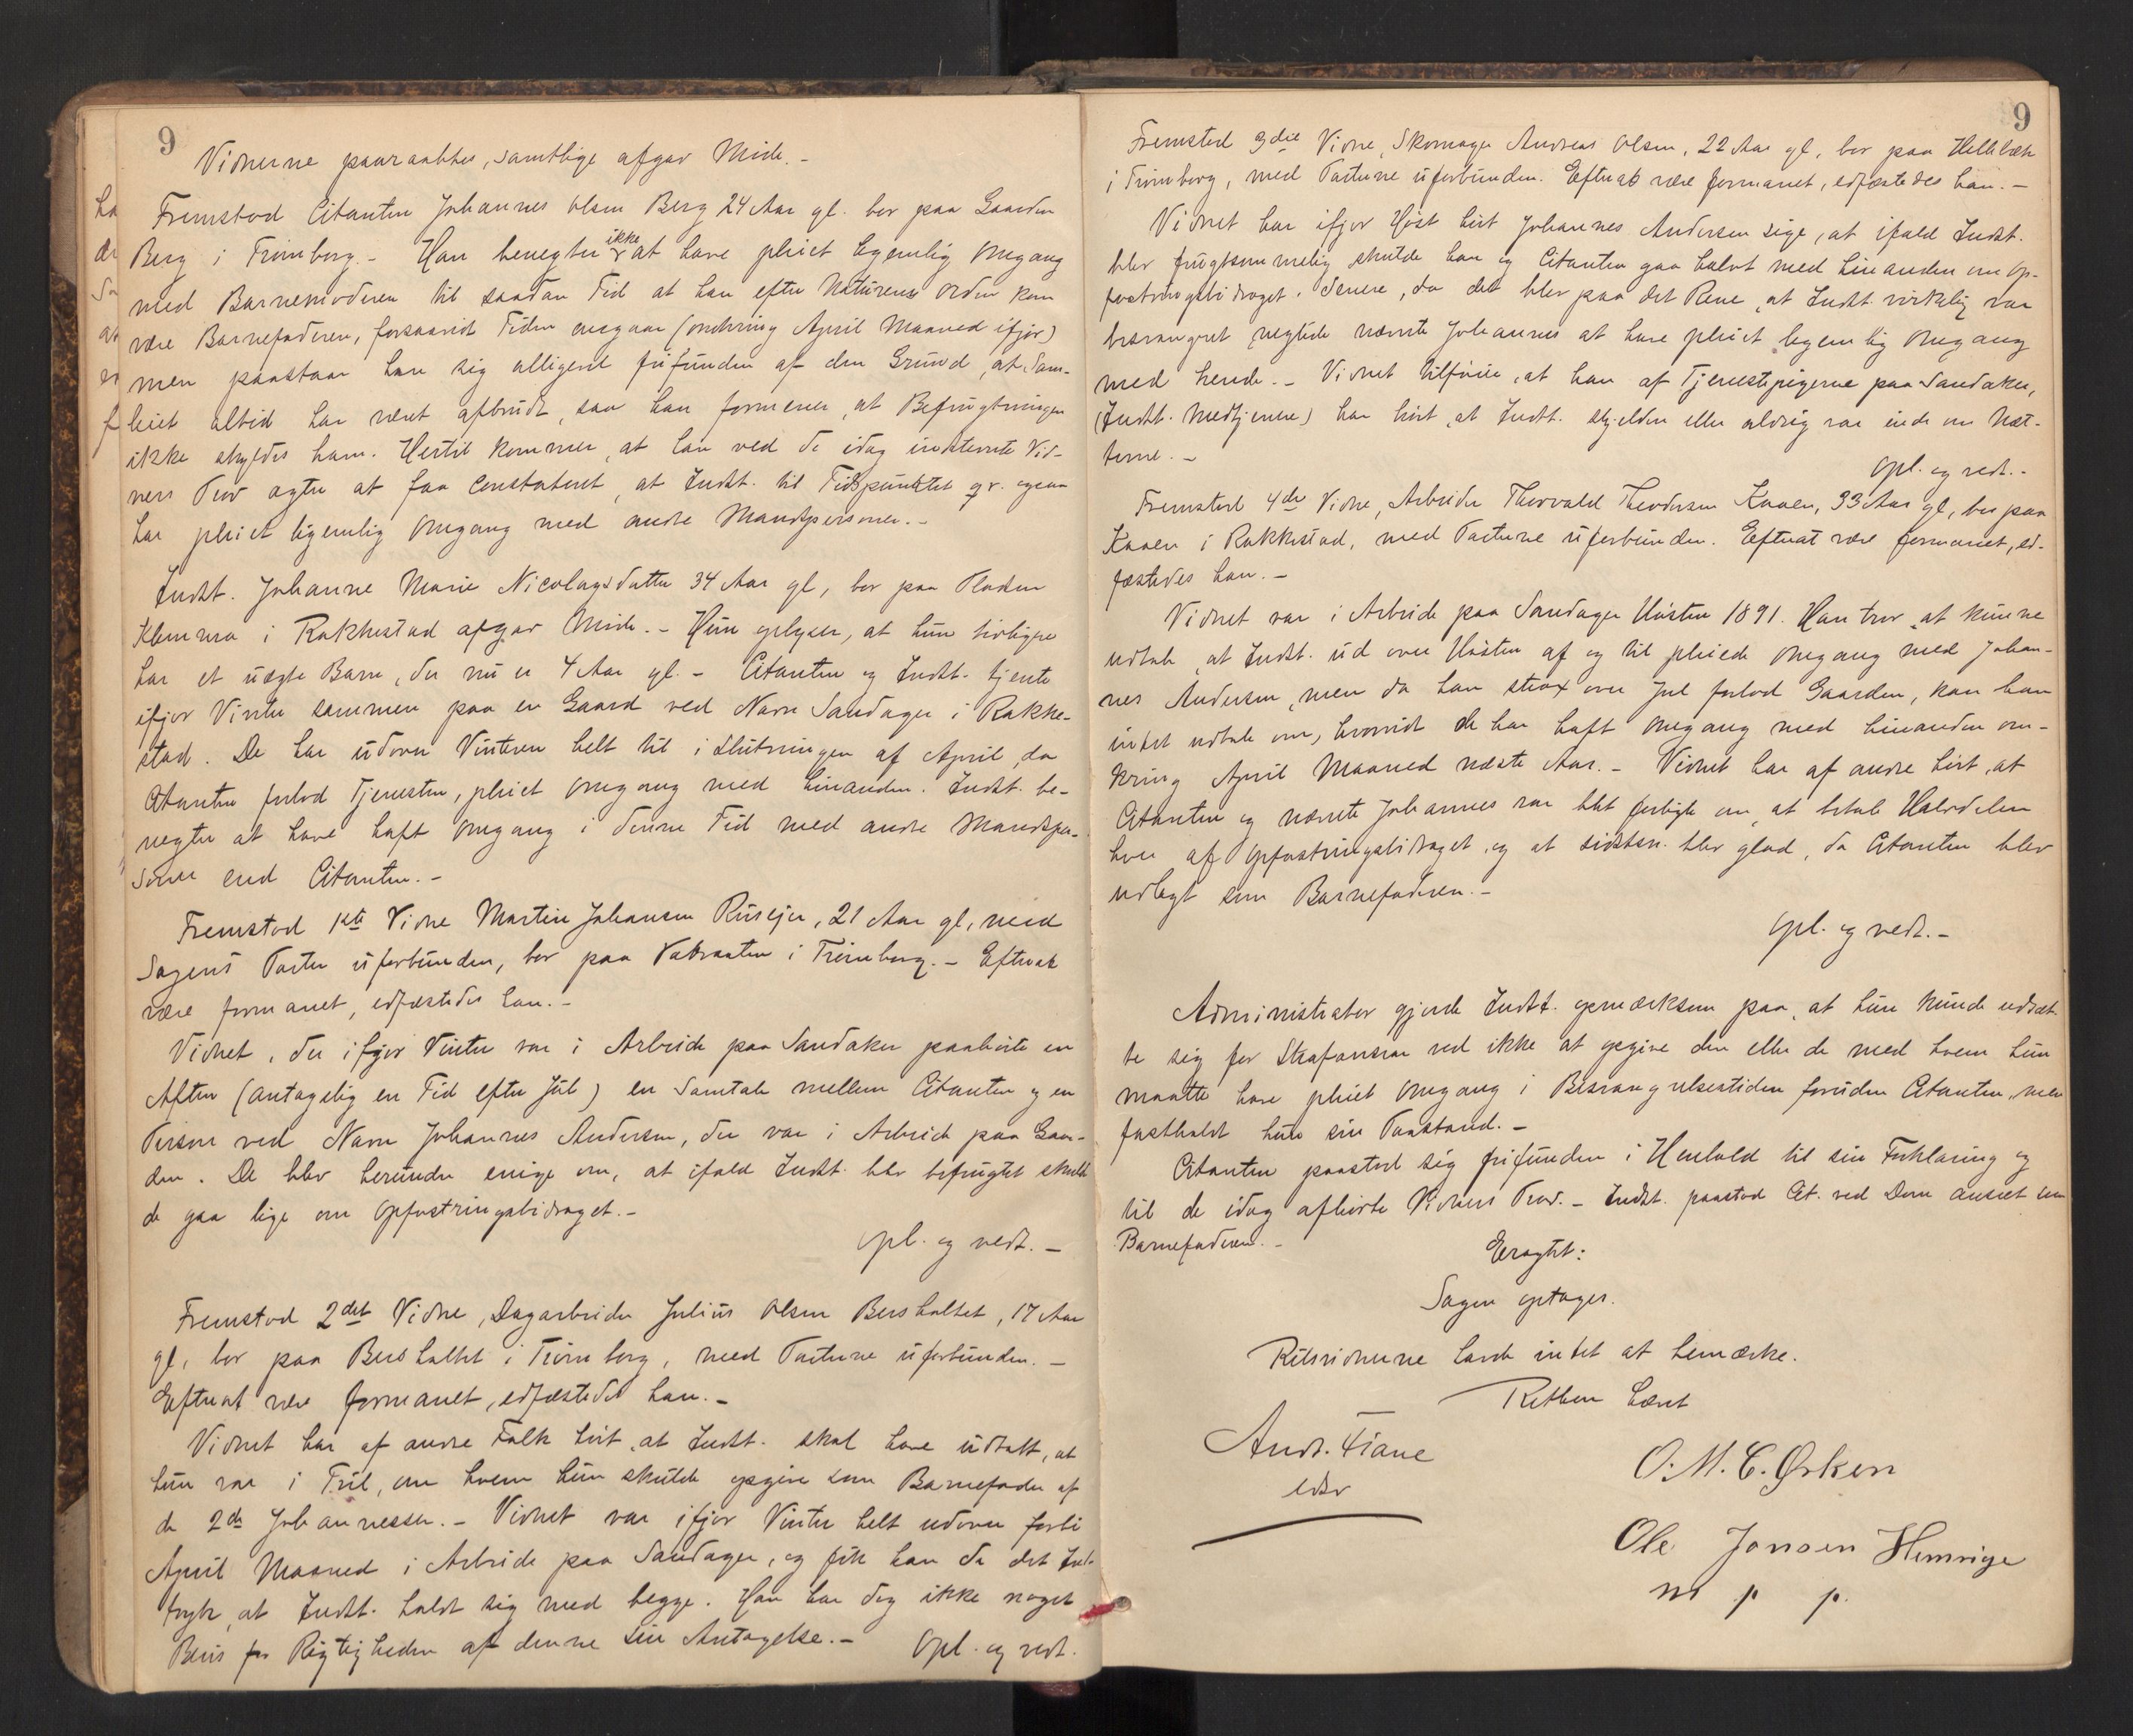 9
Vidnerne paaraabtes, samtlige afgav Møde. -
Fremstod Citanten Johannes Olsen Berg 24 Aar gl. bor paa Gaarden
Berg i Trømborg. - Han benegter ikke at have pleiet legemlig Omgang
med Barnemoderen til saadan Tid at han efter Naturens Orden kan
være Barnefaderen, forsaavidt Tiden angaar (omkring April Maaned ifjor)
men paastaar han sig alligevel frifunden af den Grund, at Sam-
leiet altid har været afbrudt, saa han formener, at Befrugtningen
ikke skyldes ham. Hertil kommer, at han ved de idag indstevnte Vid-
ners Prov agter at faa constateret, at Indst. til Tidspunktet qv. ogsaa
har pleiet legemlig Omgang med andre Mandspersoner. -
Indst. Johanne Marie Nicolaysdatter 34 Aar gl, bor paa Pladsen
Klemma i Rakkestad afgav Møde. - Hun oplyser, at hun tidligere
har et uægte Barn, der nu er 4 Aar gl. - Citanten og Indst. tjente
ifjor Vinter sammen paa en Gaard ved Navn Sandager i Rakke-
stad. De har udover Vinteren helt til i Slutningen af April, da
Citanten forlod Tjenesten, pleiet Omgang med hinanden. Indst. be-
negter at have haft Omgang i denne Tid med andre Mandsper-
soner end Citanten. -
Fremstod 1ste Vidne Martin Johansen Rusejer, 21 Aar gl, med
Sagens Parter uforbunden, bor paa Vatvaaten i Trømborg. - Efterat
være formanet, edfæstedes han. -
Vidnet, der ifjor Vinter var i Arbeide paa Sandaker paahørte en
Aften (antagelig en Tid efter Jul) en Samtale mellem Citanten og en
Person ved Navn Johannes Andersen, der var i Arbeide paa Gaar-
den. De blev herunder enige om, at ifald Indst. blev befrugtet skulde
de gaa lige om Opfostringsbidraget. -
Opl. og vedt. -
Fremstod 2det Vidne, Dagarbeider Julius Olsen Bersholtet, 17 Aar
gl, bor paa Bersholtet i Trømborg, med Parterne uforbunden. -
Efterat være formanet, edfæstedes han. -
Vidnet har af andre Folk hørt, at Indst. skal have udtalt, at
hun var i Tvil, om hvem hun skulde opgive som Barnefader af
de 2de Johannesser. - Vidnet var ifjor Vinter helt udover forbi
April Maaned i Arbeide paa Sandager, og fik han da det Ind-
tryk, at Indst. holdt sig med begge. Han har dog ikke noget
Bevis for Rigtigheden af denne sin Antagelse. - Opl. og vedt.
9
Fremstod 3die Vidne, Skomager Andreas Olsen, 22 Aar gl, bor paa Hellebæk
i Trømborg, med Parterne uforbunden. Efterat være formanet, edfæstedes han. -
Vidnet har ifjor Høst hørt Johannes Andersen sige, at ifald Indst.
blev frugtsommelig skulde han og Citanten gaa halvt med hinanden om Op-
fostringsbidraget. Senere, da det blev paa det Rene, at Indst. virkelig var
besvangret negtede nævnte Johannes at have pleiet legemlig Omgang
med hende. - Vidnet tilføier, at han af Tjenestepigerne paa Sandaker,
(Indst. Medtjenere) har hørt, at Indst. skjelden eller aldrig var inde om Næt-
terne. -
Opl. og vedt. -
Fremstod 4de Vidne, Arbeider Thorvald Theodorsen Kaaen, 33 Aar gl, bor paa
Kaaen i Rakkestad, med Parterne uforbunden. Efterat være formanet, ed-
fæstedes han. -
Vidnet var i Arbeide paa Sandager Høsten 1891. Han tror, at kunne
udtale, at Indst. ud over Høsten af og til pleiede Omgang med Johan-
nes Andersen, men da han strax over Jul forlod Gaarden, kan han
intet udtale om, hvorvidt de har haft Omgang med hinanden om-
kring April Maaned næste Aar. - Vidnet har af andre hørt, at
Citanten og nævnte Johannes var blet forligte om, at betale Halvdelen
hver af Opfostringsbidraget, og at sidstn. blev glad, da Citanten blev
udlagt som Barnefaderen. -
Opl. og vedt. -
Administrator gjorde Indst. opmærksom paa, at hun kunde udsæt-
te sig for Strafansvar ved ikke at opgive den eller de med hvem hun
maatte have pleiet Omgang i Besvangrelsestiden foruden Citanten, men
fastholdt hun sin Paastand. -
Citanten paastod sig frifunden i Henhold til sin Forklaring og
til de idag afhørte Vidners Prov. - Indst. paastod Cit. ved Dom anseet som
Barnefaderen. -
Eragtet:
Sagen optages.
Retsvidnerne havde intet at bemærke.
Retten hævet
Andr. Fiane
edsv
O. M. C. Ørken
Ole Jonsen Hemnige
m p p.